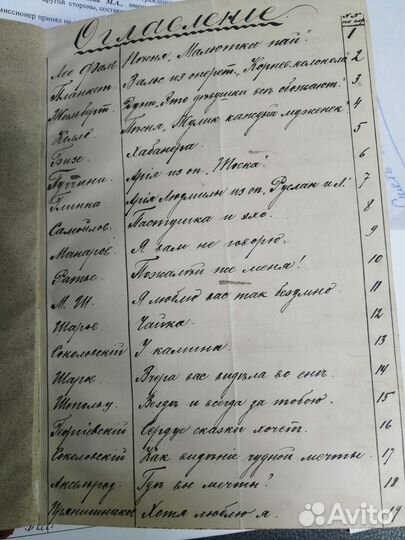 другой стороны, состави
миссионер принял на
Оглавленіе.
№№ по пор.
Лео Фаль Пѣсня, Малютки пай". 1
Планкет. Вальс из оперет., Корнев. колокола" 2
Жильберт. дѣвушки всѣ обожают." 3
Келло. Пѣсня, каждый мужск 4
Бизе. Хабанера. 5
Пуччини. Арія из оп. „Тоска". 6
Глинка Арія Людмилы из оп. „Руслан и Л." 7
Самойлов. Пастушка и эхо. 8
Макаров. Я вам не говорю. 9
Ратье. Пожалѣй же меня! 10
М. Ш. Я люблю вас так безумно. 11
Шарье Чайка. 12
Соколовскій У камина. 13
Шарье. Вчера вас видѣла во снѣ. 14
Штольц. Вездѣ и всегда за тобою. 15
Георгіевскій Сердце сказки хочет. 16
Соколовскій Как видѣніе чудной мечты. 17
Аксельрод. Гдѣ вы мечты? 18
Прянишников Хотя люблю я. 19
Avito